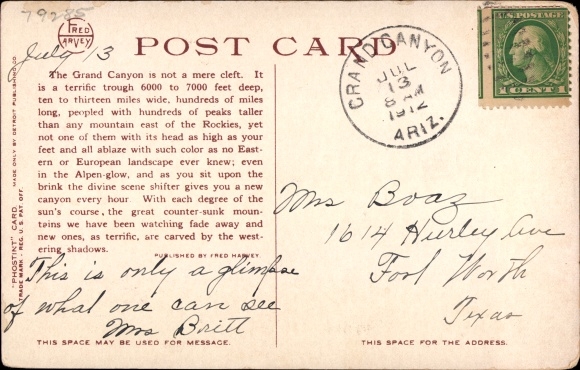 79285
FRED HARVEY
July 13
POST CARD
GRAND CANYON
JUL
13
8 AM
1912
ARIZ.
U.S. POSTAGE
1 CENT 1
The Grand Canyon is not a mere cleft. It
is a terrific trough 6000 to 7000 feet deep,
ten to thirteen miles wide, hundreds of miles
long, peopled with hundreds of peaks taller
than any mountain east of the Rockies, yet
not one of them with its head as high as your
feet and all ablaze with such color as no East-
ern or European landscape ever knew; even
in the Alpen-glow, and as you sit upon the
brink the divine scene shifter gives you a new
canyon every hour With each degree of the
sun's course, the great counter-sunk moun-
tains we have been watching fade away and
new ones, as terrific, are carved by the west-
ering shadows.
PUBLISHED BY FRED HARVEY.
"PHOSTINT" CARD MADE ONLY BY DETROIT PUBLISHING CO.
TRADE MARK - REG. U.S. PAT. OFF.
This is only a glimpse
of what one can see
Mrs Britt
Mrs Boaz
1614 Hurley Ave
Fort Worth
Texas
THIS SPACE MAY BE USED FOR MESSAGE.
THIS SPACE IS FOR THE ADDRESS.